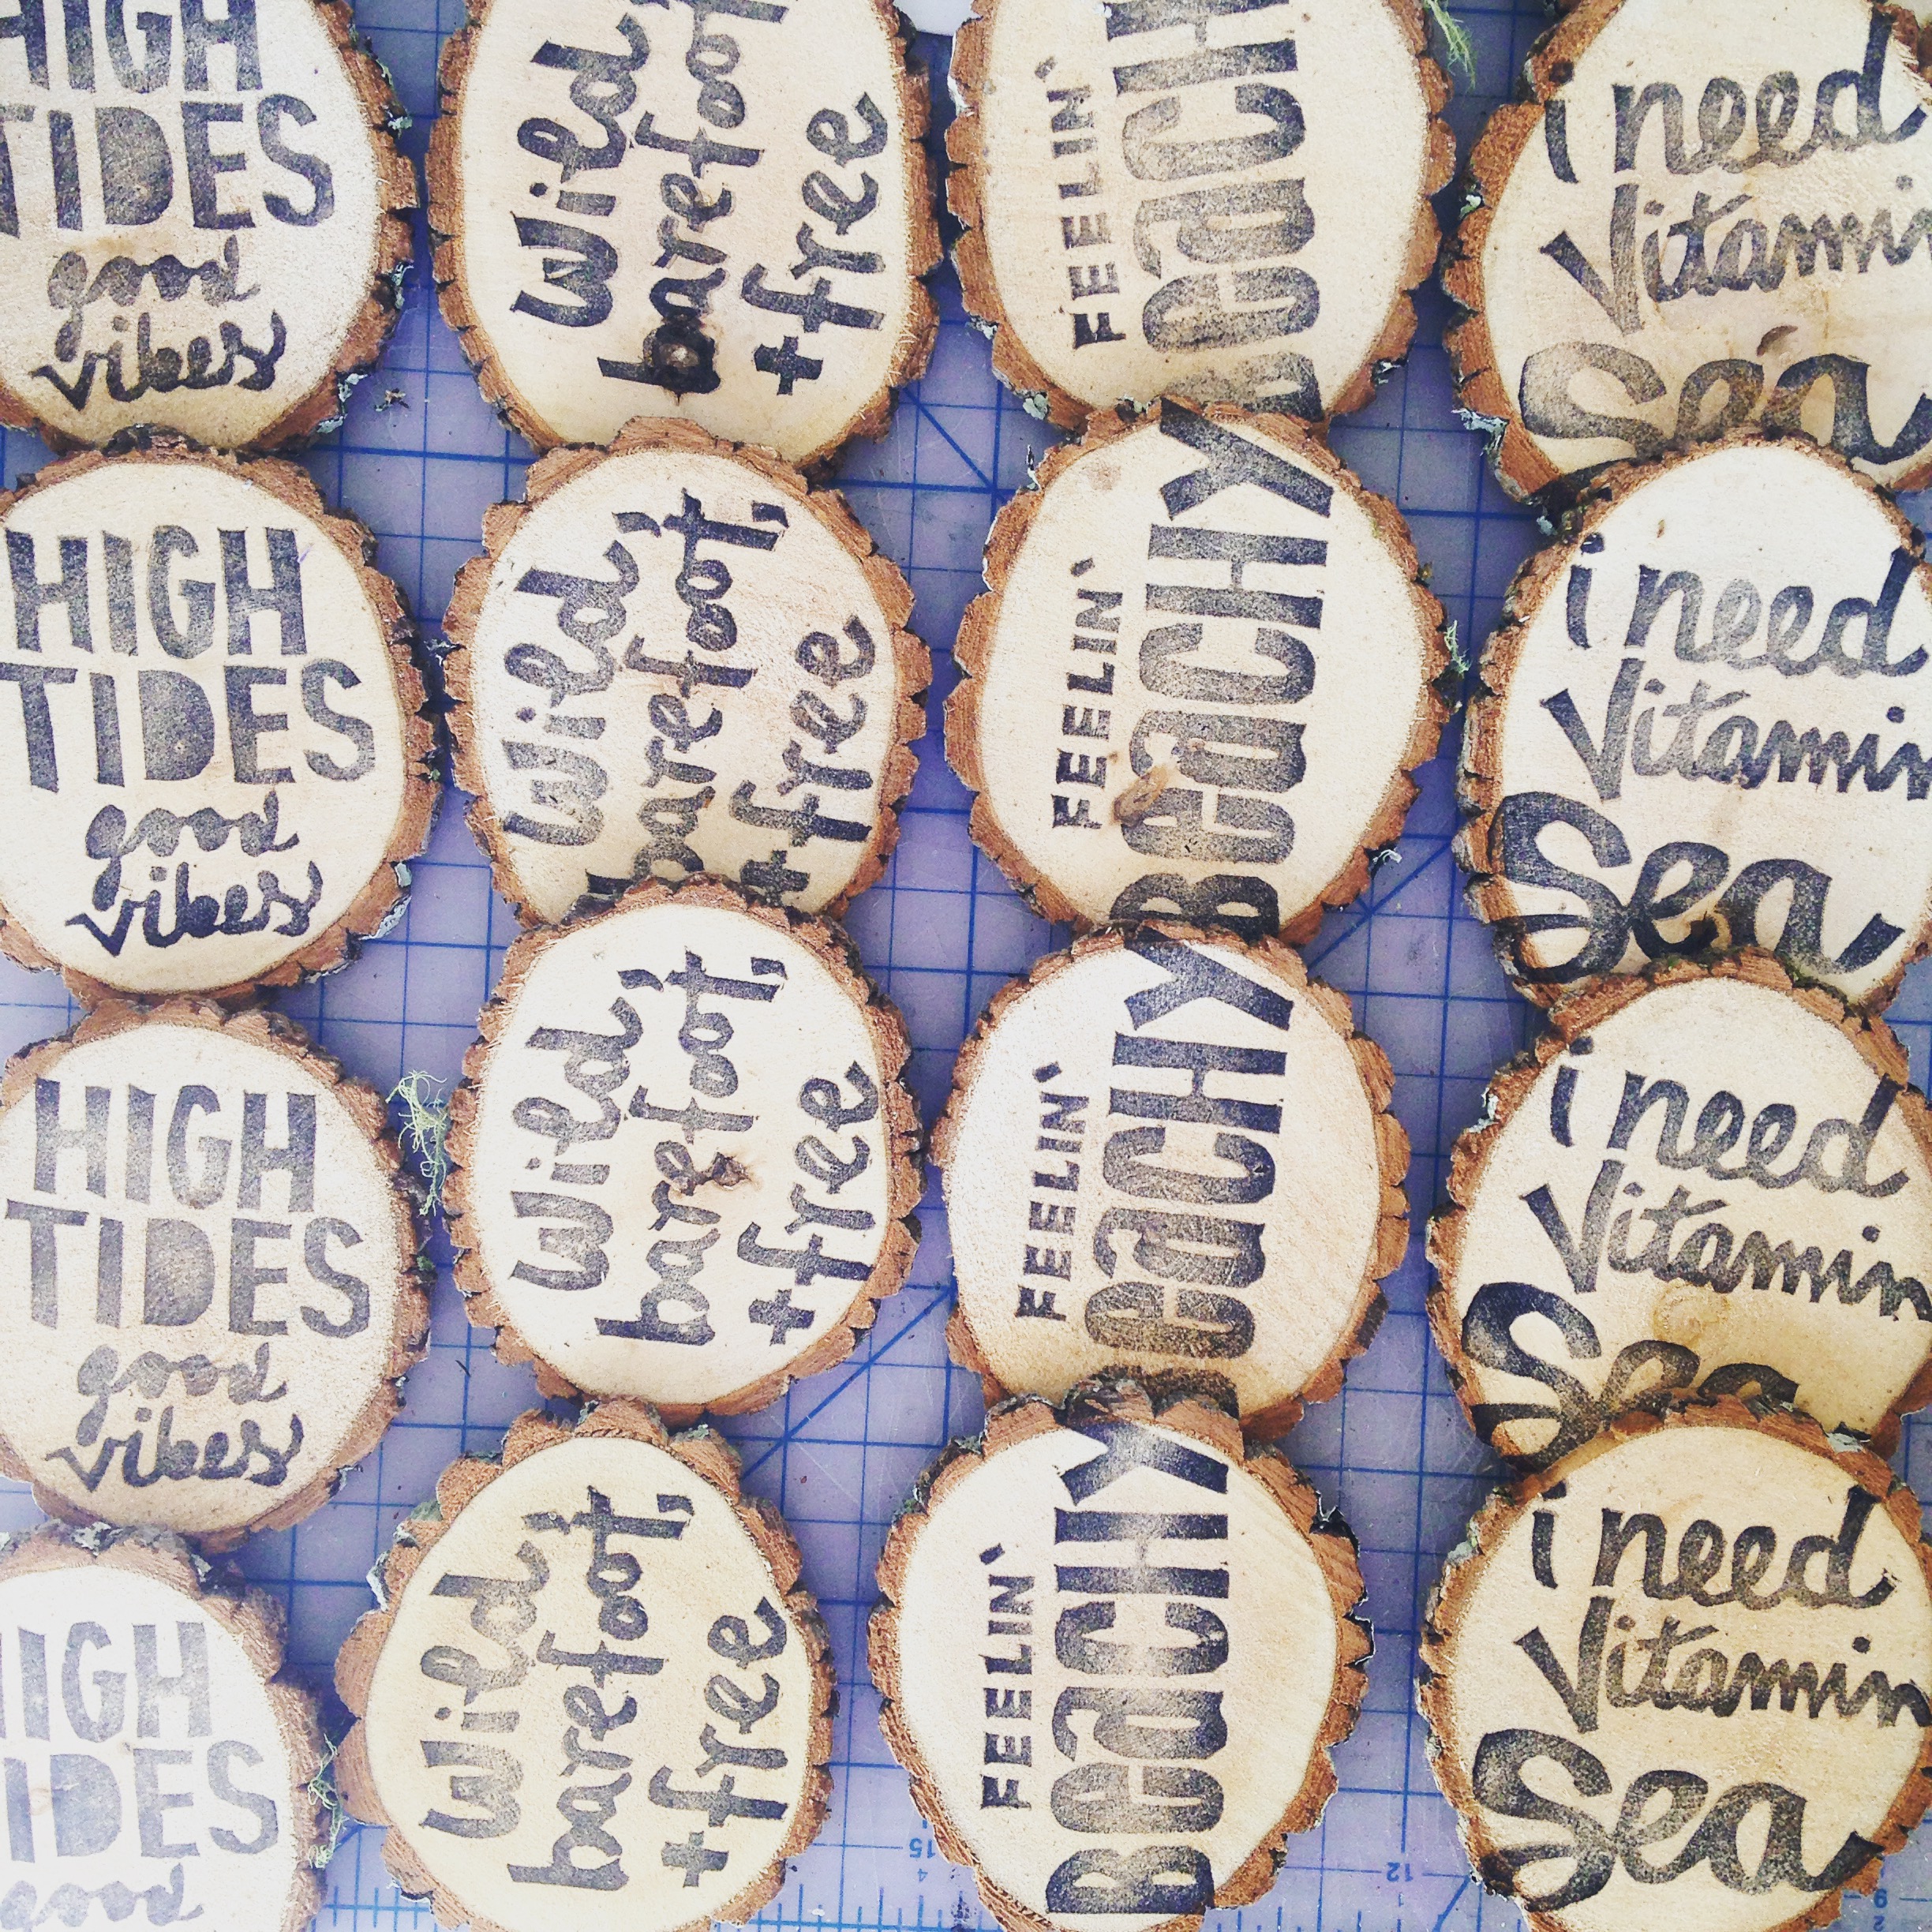 HIGH
TIDES
good
vibes
Wild,
barefoot
+ free
FEELIN'
BEACH
i need
Vitamin
Sea
HIGH
TIDES
good
vibes
Wild,
barefoot,
+ free
FEELIN'
BEACHY
i need
Vitamin
Sea
HIGH
TIDES
good
vibes
Wild,
barefoot,
+ free
FEELIN'
BEACHY
i need
Vitamin
Sea
HIGH
TIDES
good
Wild,
barefoot,
+ free
FEELIN'
BEACHY
i need
Vitamin
Sea
15
4
12
9